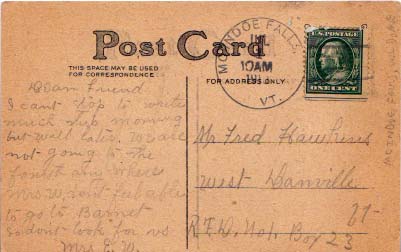 Post Card
THIS SPACE MAY BE USED
FOR CORRESPONDENCE
FOR ADDRESS ONLY
MCINDOE FALLS
JUL
10AM
VT.
U.S. POSTAGE
ONE CENT
Dear Friend
I cant stop to write
much this morning
but will later. We are
not going to the
fourth any where
Mrs W. dont feel able
to go to Barnet
so dont look for us
Mrs E. W.
Mr Fred Hawkins
West Danville
Vt-
R.F.D. No 1. Box 23